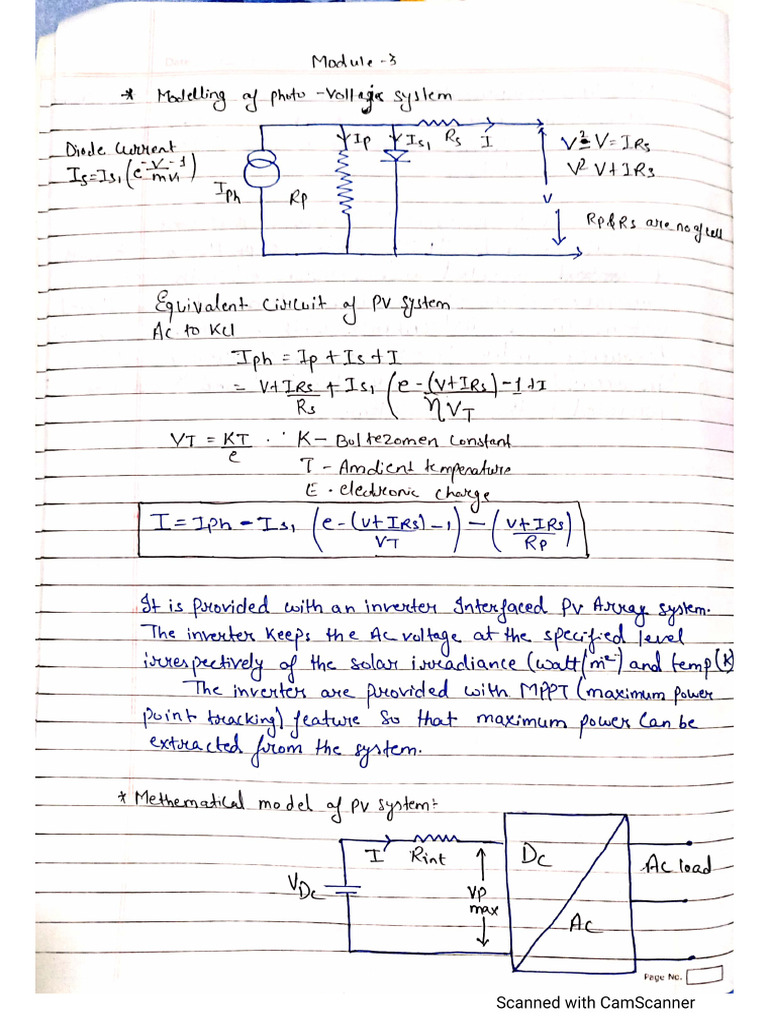 Module -3
* Modelling of photo -Voltagic system
Diode Current
Is = Is1 (e -V/mVt -1)
Iph
Rp
Ip
Is1
Rs
I
V
V = IRs
V+IRs
Rp & Rs are no of cell
Equivalent Circuit of PV system
Ac to Kcl
Iph = Ip + Is + I
= V+IRs/Rs + Is1 (e -(V+IRs)/ηVT -1 + I
VT = KT/e ∵ K - Boltezomen Constant
T - Amdient temperature
E - electronic charge
I = Iph - Is1 (e -(V+IRs)/VT -1) - (V+IRs/Rp)
It is provided with an inverter Interfaced PV Array system.
The inverter Keeps the Ac voltage at the specified level
irrespectively of the solar irradiance (watt/m²) and temp (K)
The inverter are provided with MPPT (maximum power
point tracking) feature so that maximum power can be
extracted from the system.
* Methematical model of PV system:-
I
Rint
VDc
VP
max
Dc
Ac
Ac load
Page No.
Scanned with CamScanner